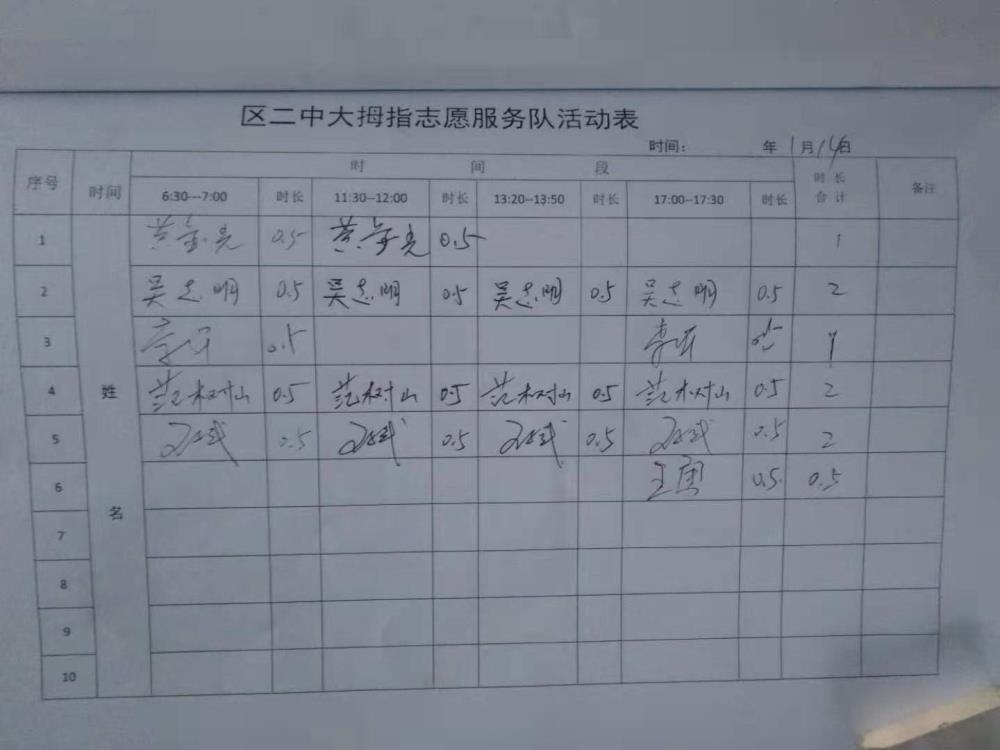 区二中大拇指志愿服务队活动表
时间: 年 1 月 14 日
序号 时间 时间段 时长合计 备注
6:30---7:00 时长 11:30--12:00 时长 13:20--13:50 时长 17:00--17:30 时长
姓名
1 黄金亮 0.5 黄金亮 0.5 1
2 吴志明 0.5 吴志明 0.5 吴志明 0.5 吴志明 0.5 2
3 0.5 1
4 范树山 0.5 范树山 0.5 范树山 0.5 范树山 0.5 2
5 0.5 0.5 0.5 0.5 2
6 0.5 0.5
7
8
9
10